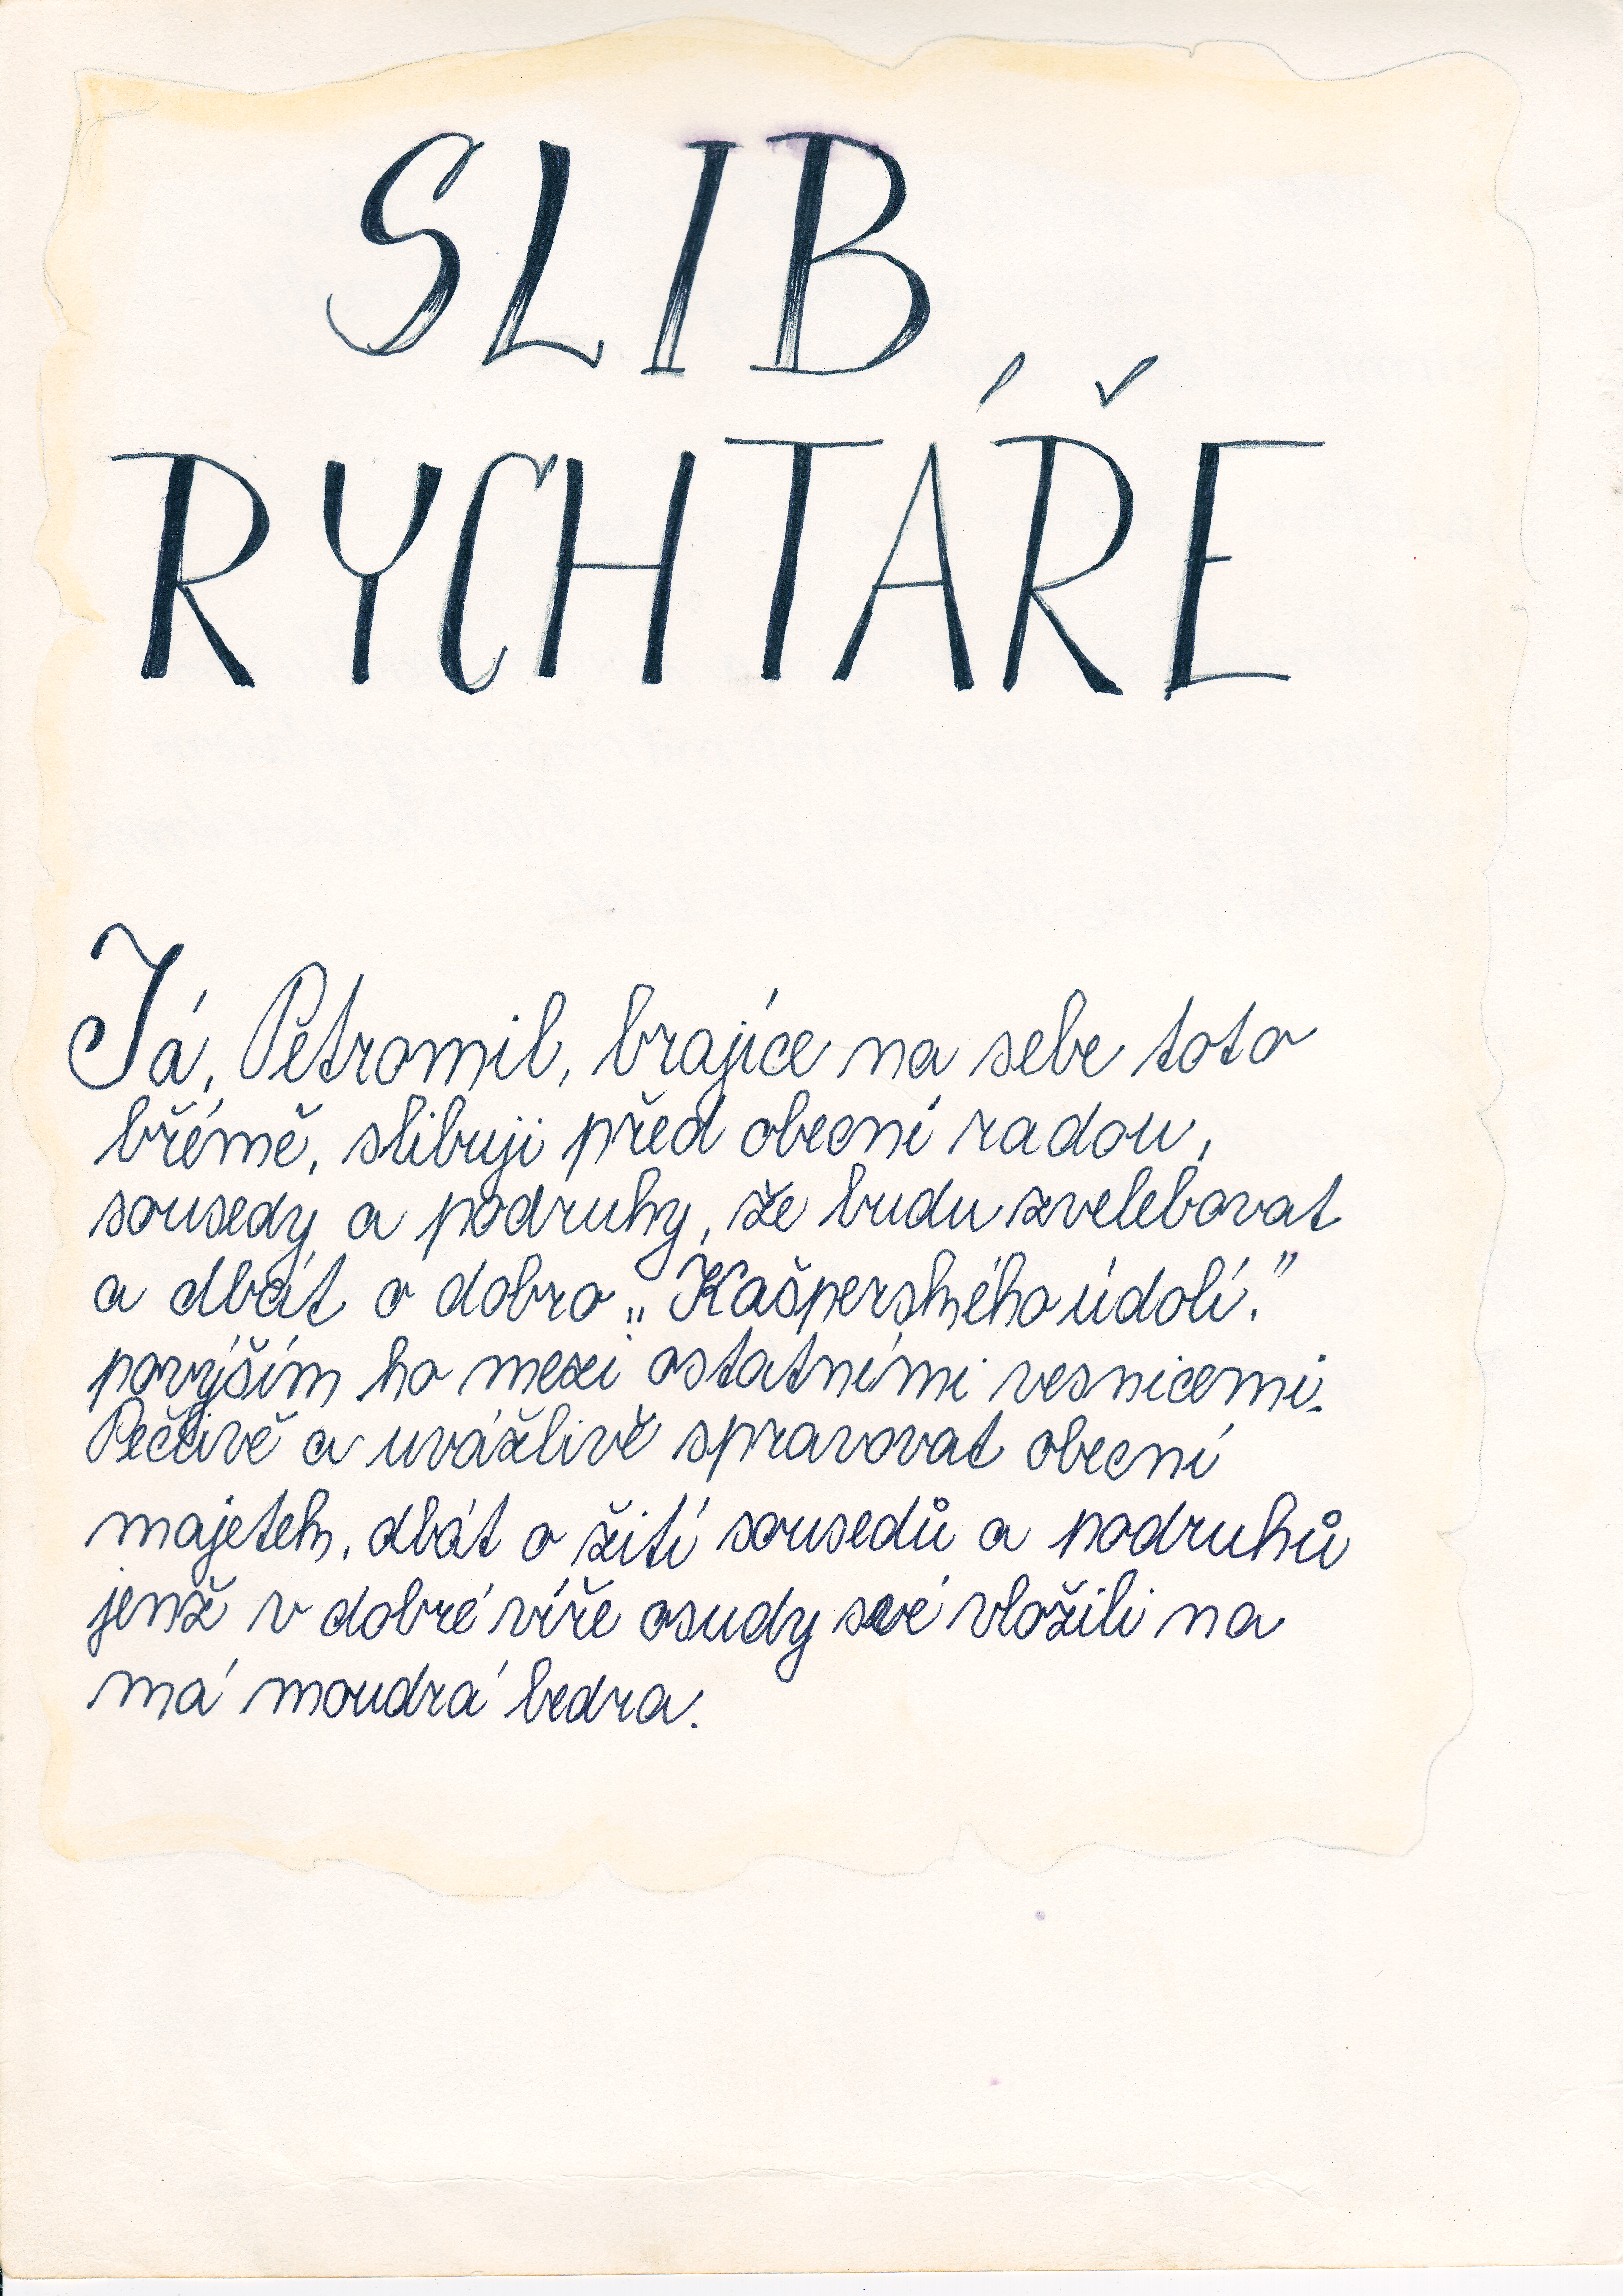 SLIB
RYCHTÁŘE
Já, Petromil, brajíce na sebe toto
břémě, slibuji před obecní radou,
sousedy a podruhy, že budu zvelebovat
a dbát o dobro „Kašperského údolí."
povýším ho mezi ostatními vesnicemi.
Pečlivě a uvážlivě spravovat obecní
majetek, dbát o žití sousedů a podruhů
jenž v dobré víře osudy své vložili na
má moudrá bedra.